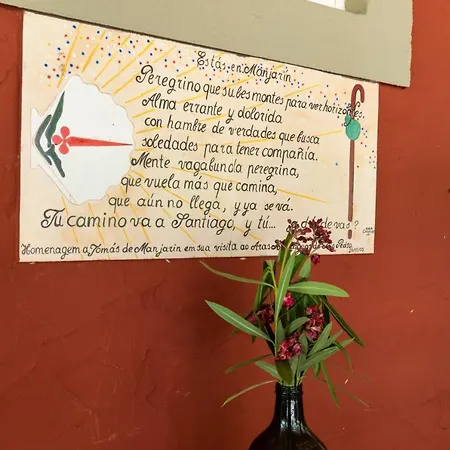 Estás en Manjarín
Peregrino que subes montes para ver horizontes.
Alma errante y dolorida
con hambre de verdades que busca
soledades para tener compañía.
Mente vagabunda peregrina,
que vuela más que camina,
que aún no llega, y ya se vá.
Tu camino va a Santiago, y tú... ¿a dónde vas?
Homenagem a Tomás de Manjarin em sua visita ao